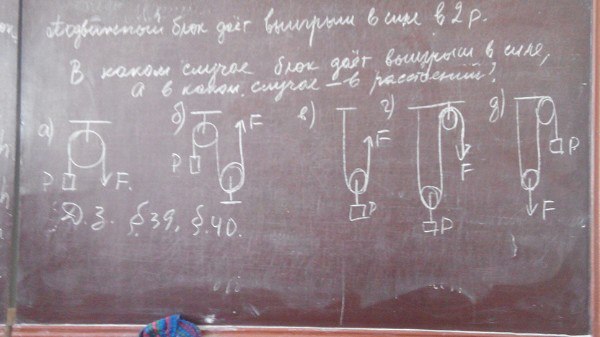 Подвижный блок даёт выигрыш в силе в 2 р.
В каком случае блок даёт выигрыш в силе,
а в каком случае – в расстоянии?
а) б) в) г) д)
P F P F F P F P P F
Д.З. §39, §40.